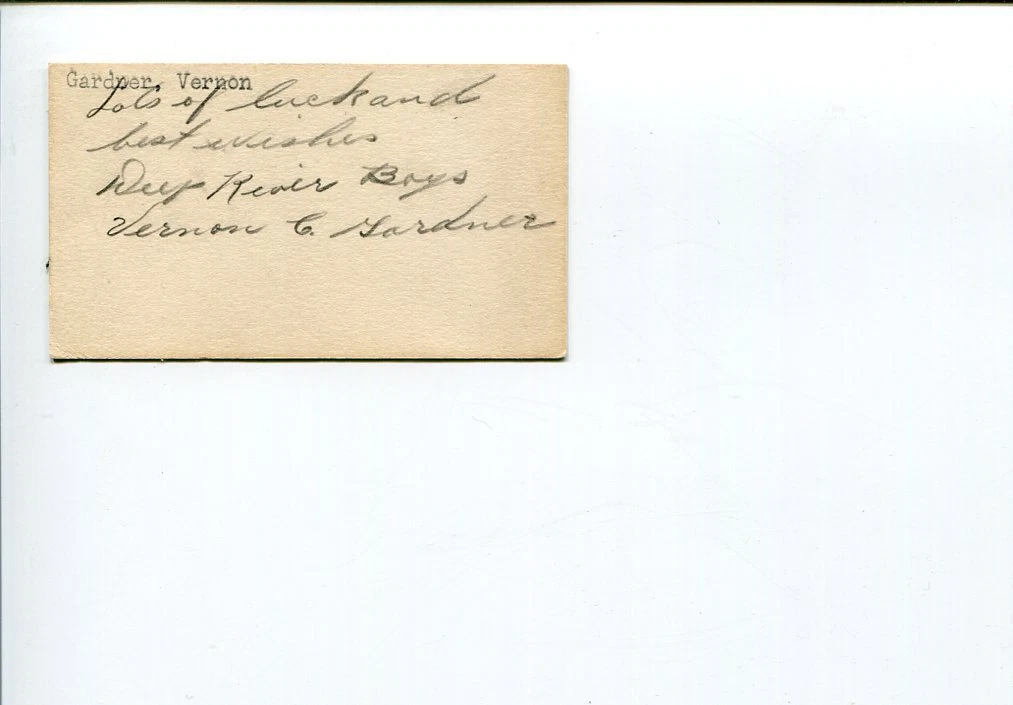 Gardner, Vernon
Lots of luck and
best wishes
Deep River Boys
Vernon C. Gardner